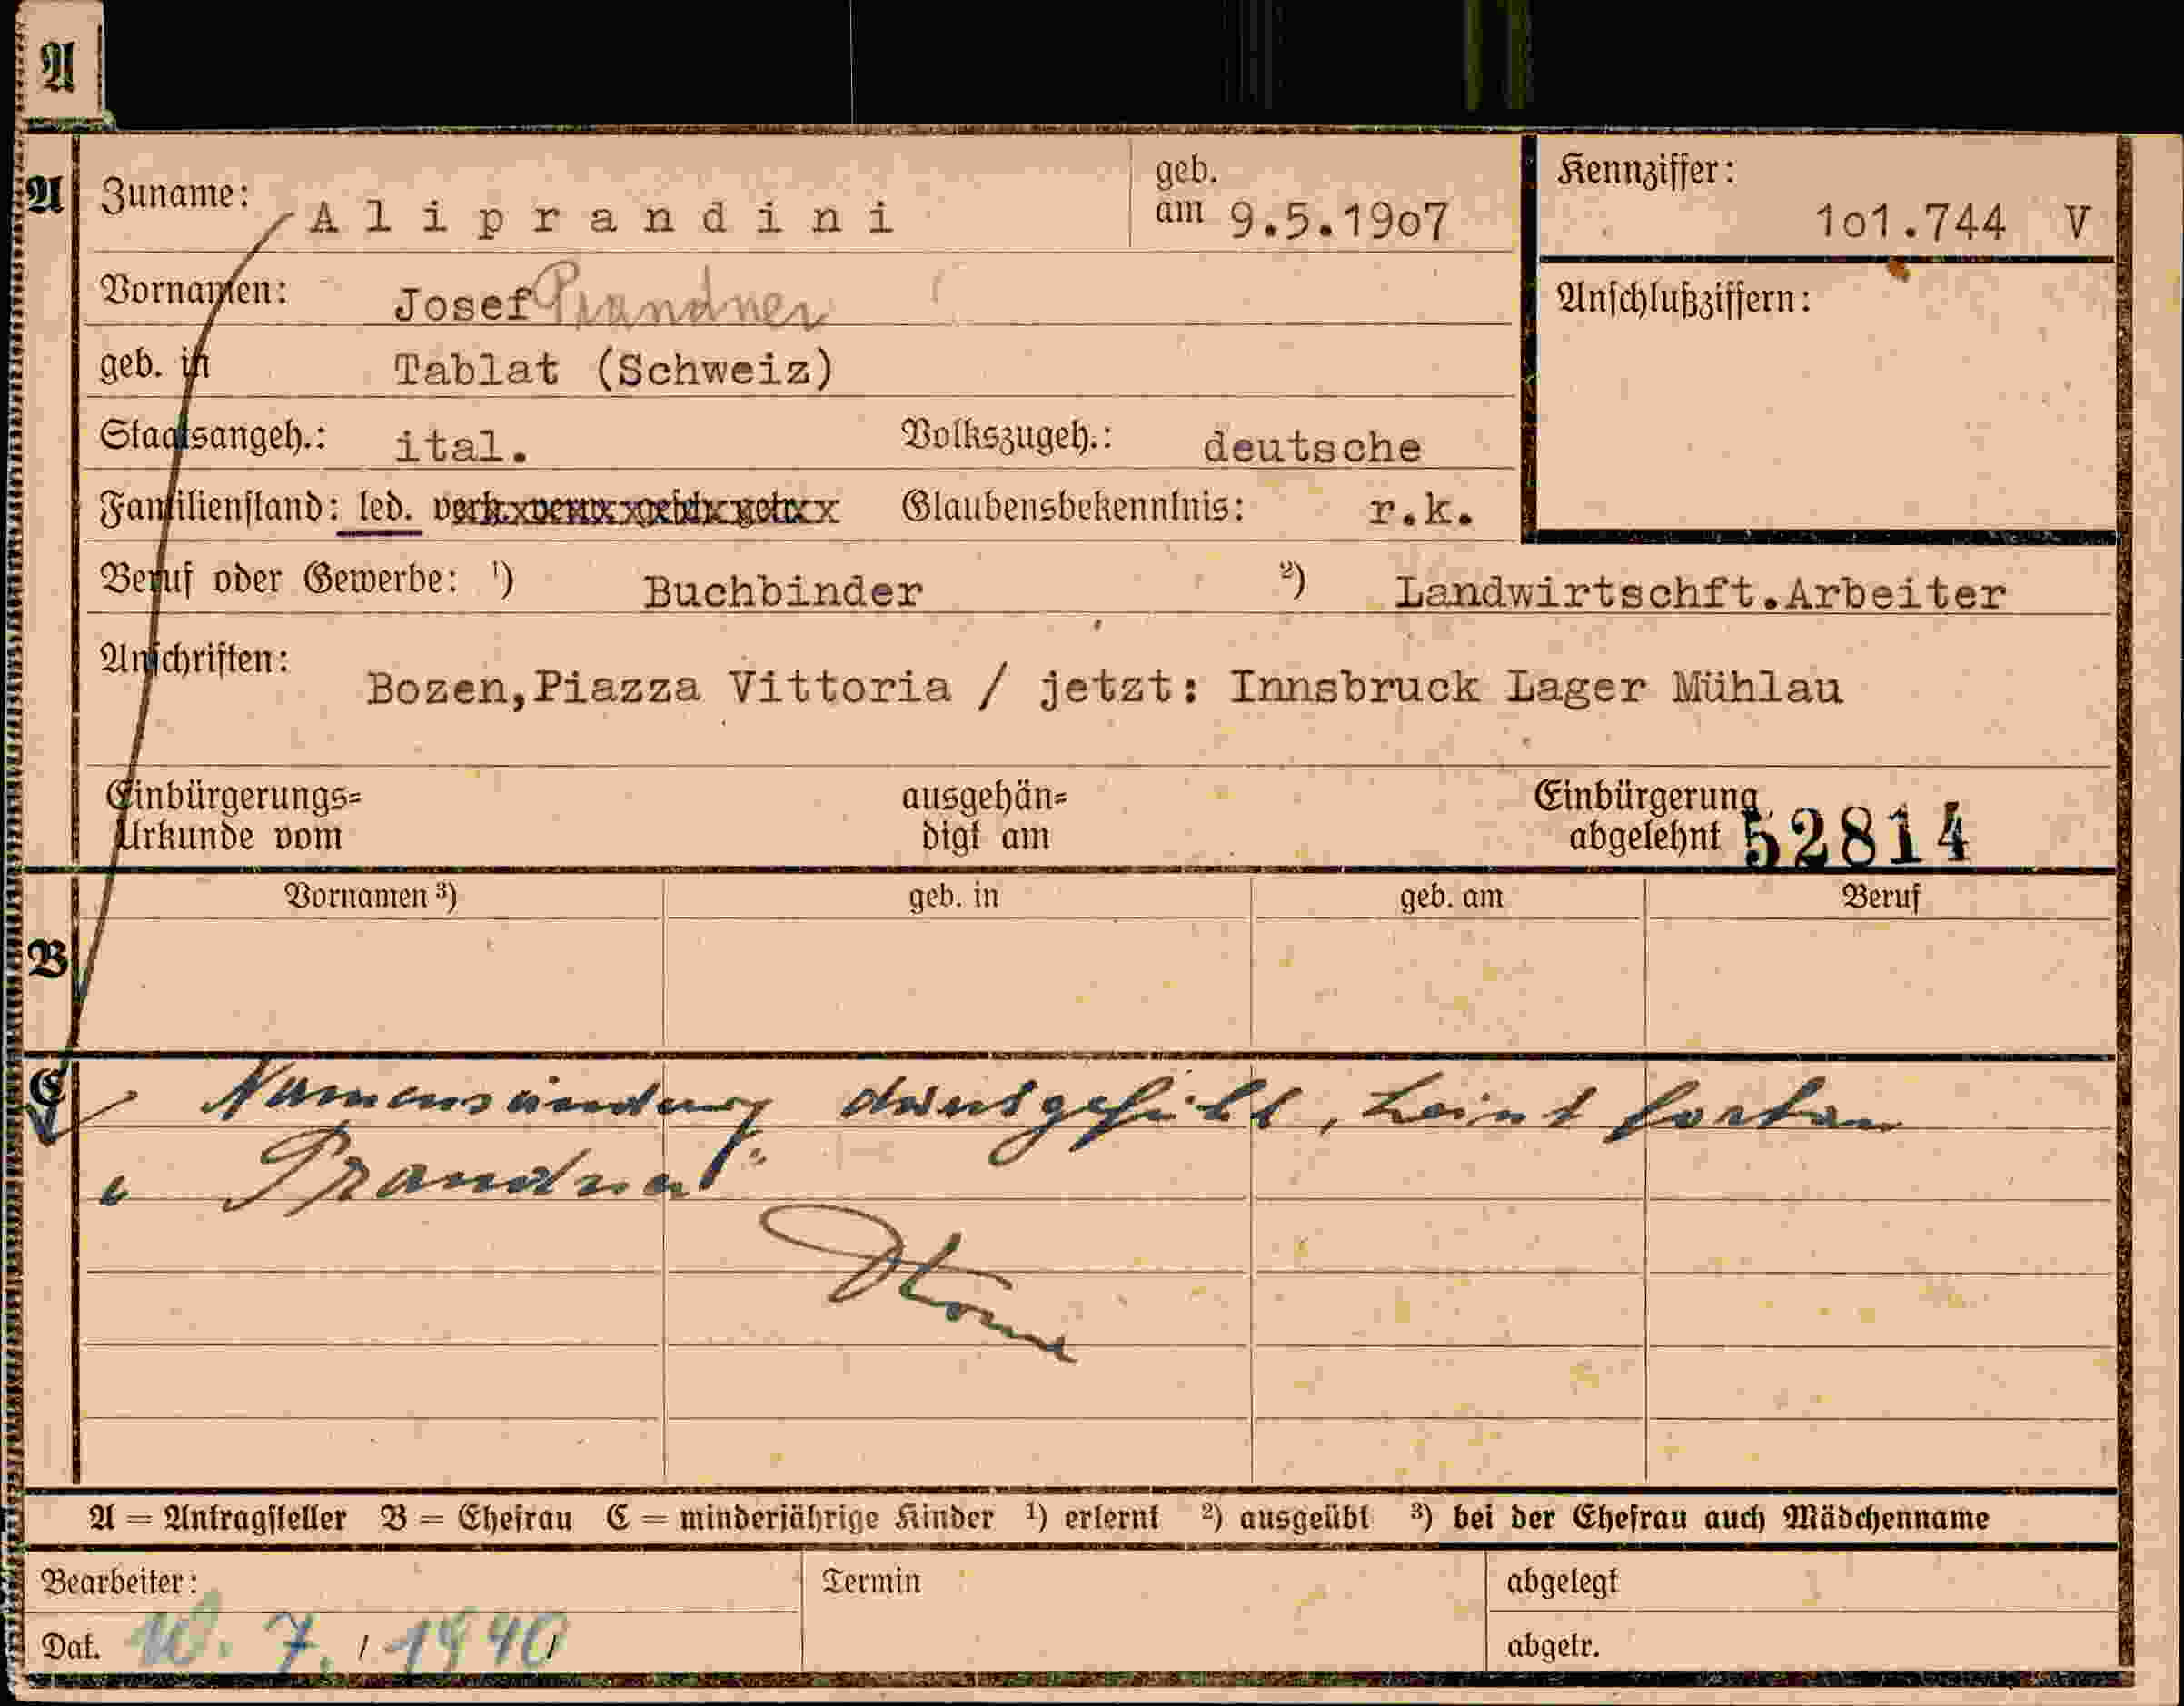 A
A Zuname: A l i p r a n d i n i geb. am 9.5.19o7 Kennziffer: 1o1.744 V
Vornamen: Josef Prandner Anschlußziffern:
geb. in Tablat (Schweiz)
Staatsangeh.: ital. Volkszugeh.: deutsche
Familienstand: led. verh. verw. gesch. getr. Glaubensbekenntnis: r.k.
Beruf oder Gewerbe: ¹) Buchbinder ²) Landwirtschft.Arbeiter
Anschriften: Bozen,Piazza Vittoria / jetzt: Innsbruck Lager Mühlau
Einbürgerungs= ausgehän= Einbürgerung
Urkunde vom digt am abgelehnt 52814
Vornamen ³) geb. in geb. am Beruf
B
C Namensänderung durchgeführt, heint fortan
" Prandner"
A = Antragsteller B = Ehefrau C = minderjährige Kinder ¹) erlernt ²) ausgeübt ³) bei der Ehefrau auch Mädchenname
Bearbeiter: Termin abgelegt
Dat. 10. 7. / 1940 / abgetr.